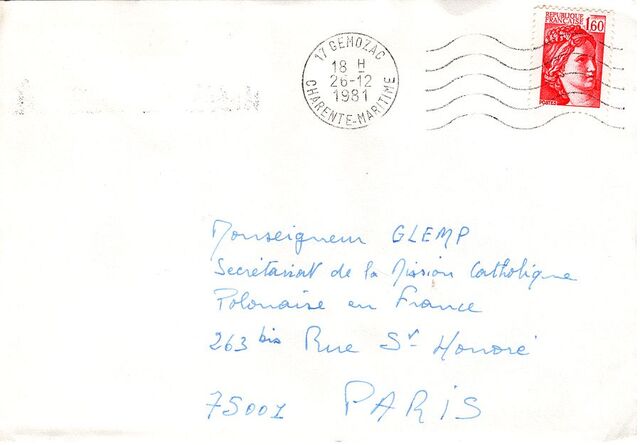 17 GEMOZAC
18 H
26-12
1981
CHARENTE-MARITIME
REPUBLIQUE
FRANÇAISE
1,60
POSTES
Monseigneur GLEMP
Secrétariat de la Mission Catholique
Polonaise en France
263 bis Rue St Honoré
75001 PARIS